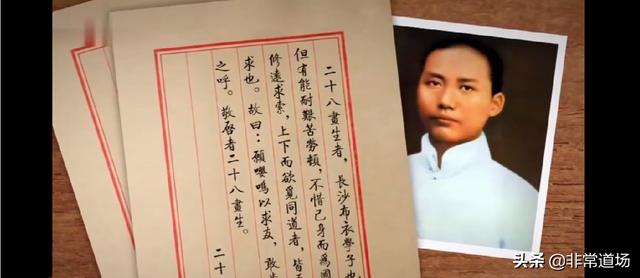 二十八畫生者，長沙布衣學子也
但有能耐艱苦勞頓，不惜己身而為國
修遠求索，上下而欲覓同道者，皆
求也。故曰：願嚶鳴以求友，敢步
之呼。敬啓者二十八畫生。 二十
头条 @非常道场